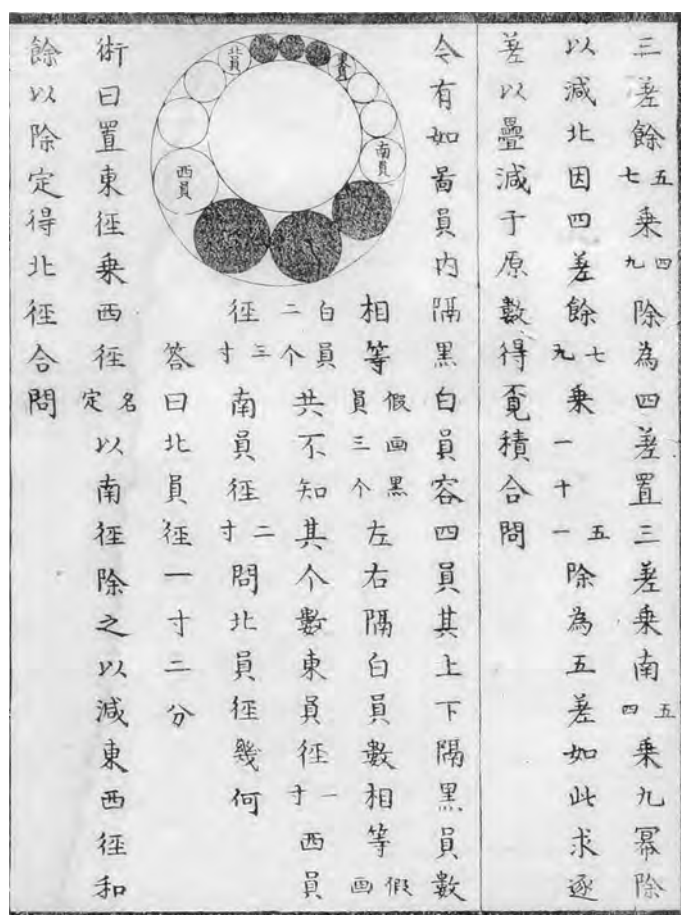 三差餘七五乗九四除為四差置三差乗南四五乗九冪除
以減北因四差餘九七乗一十一五除為五差如此求逐
差以疊減于原數得覔積合問
今有如啚員内隔黒白員容四員其上下隔黒員數
相等假画黒員三个左右隔白員數相等假画
白員二个共不知其个數東員徑一寸西員
徑三寸南員徑二寸問北員徑幾何
答曰北員徑一寸二分
術曰置東徑乗西徑名定以南徑除之以減東西徑和
餘以除定得北徑合問
東員
南員
西員
北員